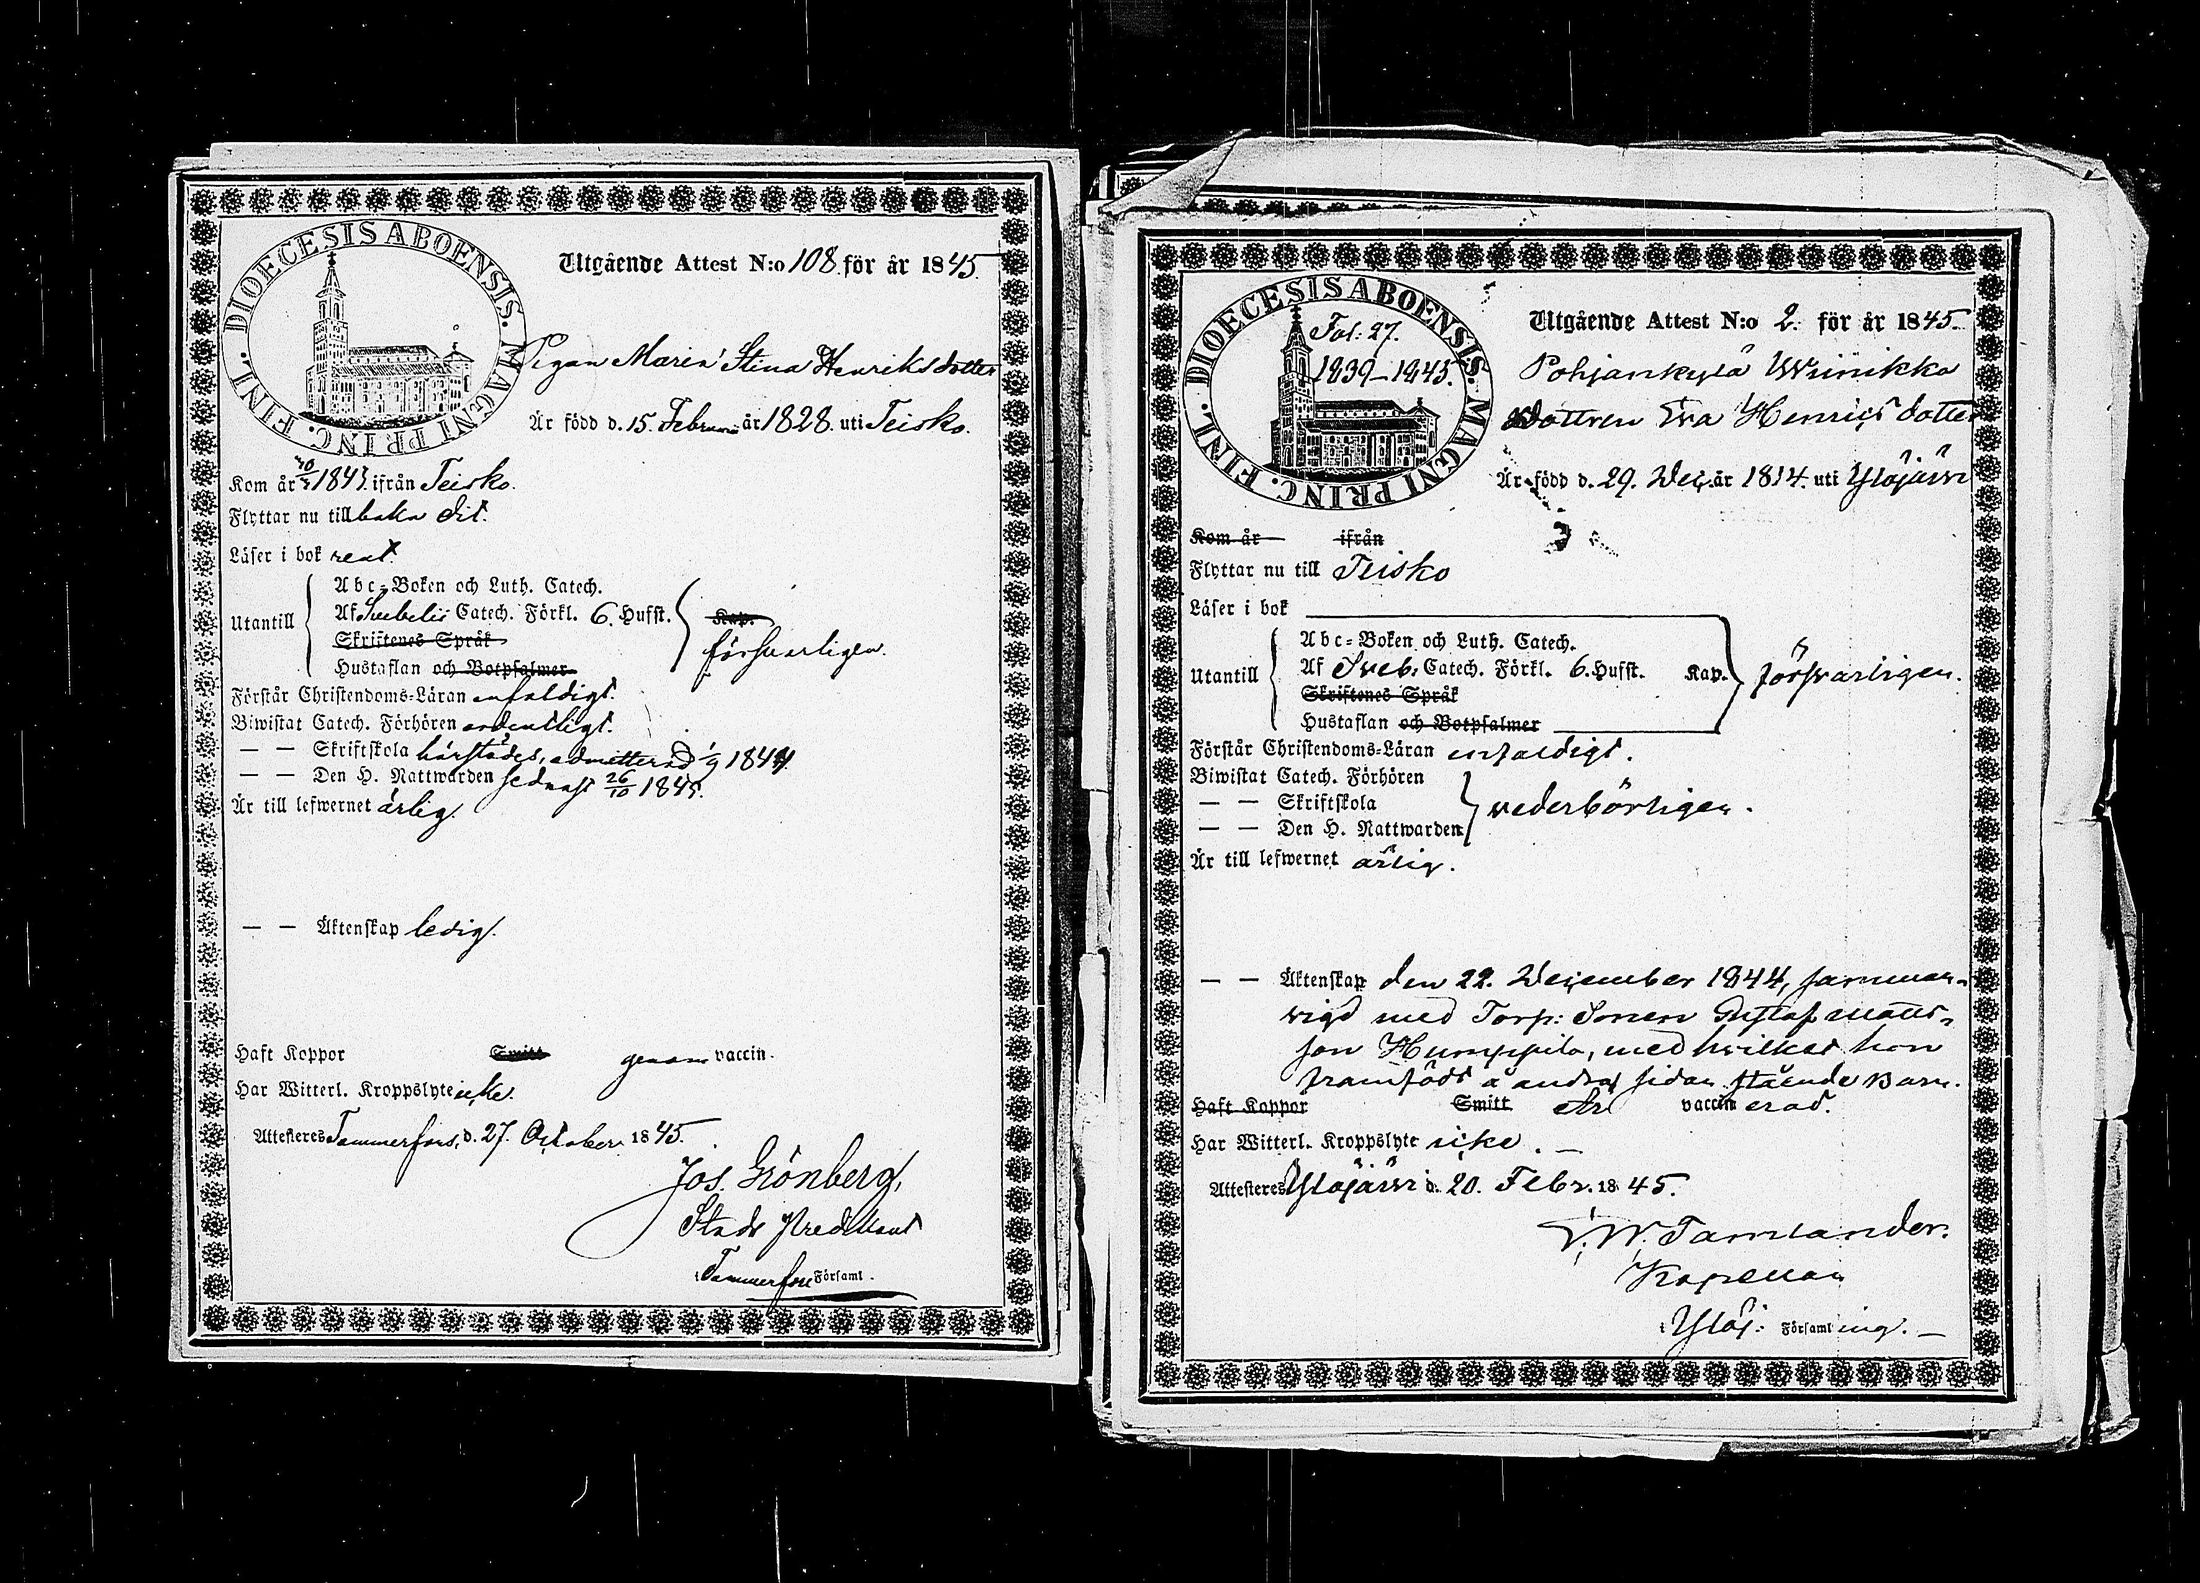 DIOECESIS ABOENSIS. MAGNI PRINC. FINL.
Utgående Attest N:o 108 för år 1845.
Pigan Maria Stina Henriksdotter
Är född d. 15. Februarii år 1828. uti Teisko.
Kom år 1843 ifrån Teisko.
Flyttar nu till baka dit.
Läser i bok rent.
Utantill
Abc-Boken och Luth. Catech.
Af Svebelii Catech. Förkl. 6. Hufst.
Skriftenes Språk
Hustaflan och Botpsalmer
Kap.
försvarligen.
Förstår Christendoms-Läran enfaldigt.
Biwistat Catech. Förhören ordentligt.
— — Skriftskola härstädes, admitterad 1/9 1844.
— — Den H. Nattwarden sednast 26/10 1845.
Är till lefwernet ärlig.
— — Äktenskap ledig.
Haft Koppor Smitt genom vaccin.
Har Witterl. Kroppslyte icke.
Attesteres Tammerfors, d. 27. October 1845.
Jos. Grönberg,
Stads Predikant
i Tammerfors Församl.
DIOECESIS ABOENSIS. MAGNI PRINC. FINL.
Fol: 27.
1839–1845.
Utgående Attest N:o 2. för år 1845.
Pohjankylä Wiinikka
Dottren Eva Henricsdotter
Är född d. 29. Dec. år 1814. uti Ylöjärvi
Kom år ifrån
Flyttar nu till Teisko
Läser i bok
Utantill
Abc-Boken och Luth. Catech.
Af Sveb. Catech. Förkl. 6. Hufst. Kap.
Skriftenes Språk
Hustaflan och Botpsalmer
försvarligen.
Förstår Christendoms-Läran enfaldigt.
Biwistat Catech. Förhören
— — Skriftskola
— — Den H. Nattwarden
vederbörligen.
Är till lefwernet ärlig.
— — Äktenskap den 22. December 1844, samman-
vigd med Torp: Sonen Gustaf Matts-
son Humppila, med hvilken hon
framfödt å andra sidan stående Barn.
Haft Koppor Smitt är vaccinerad.
Har Witterl. Kroppslyte icke. —
Attesteres Ylöjärvi d. 20. Febr. 1845.
W. Tamlander.
Kapellan
i Ylöj: Församling. —